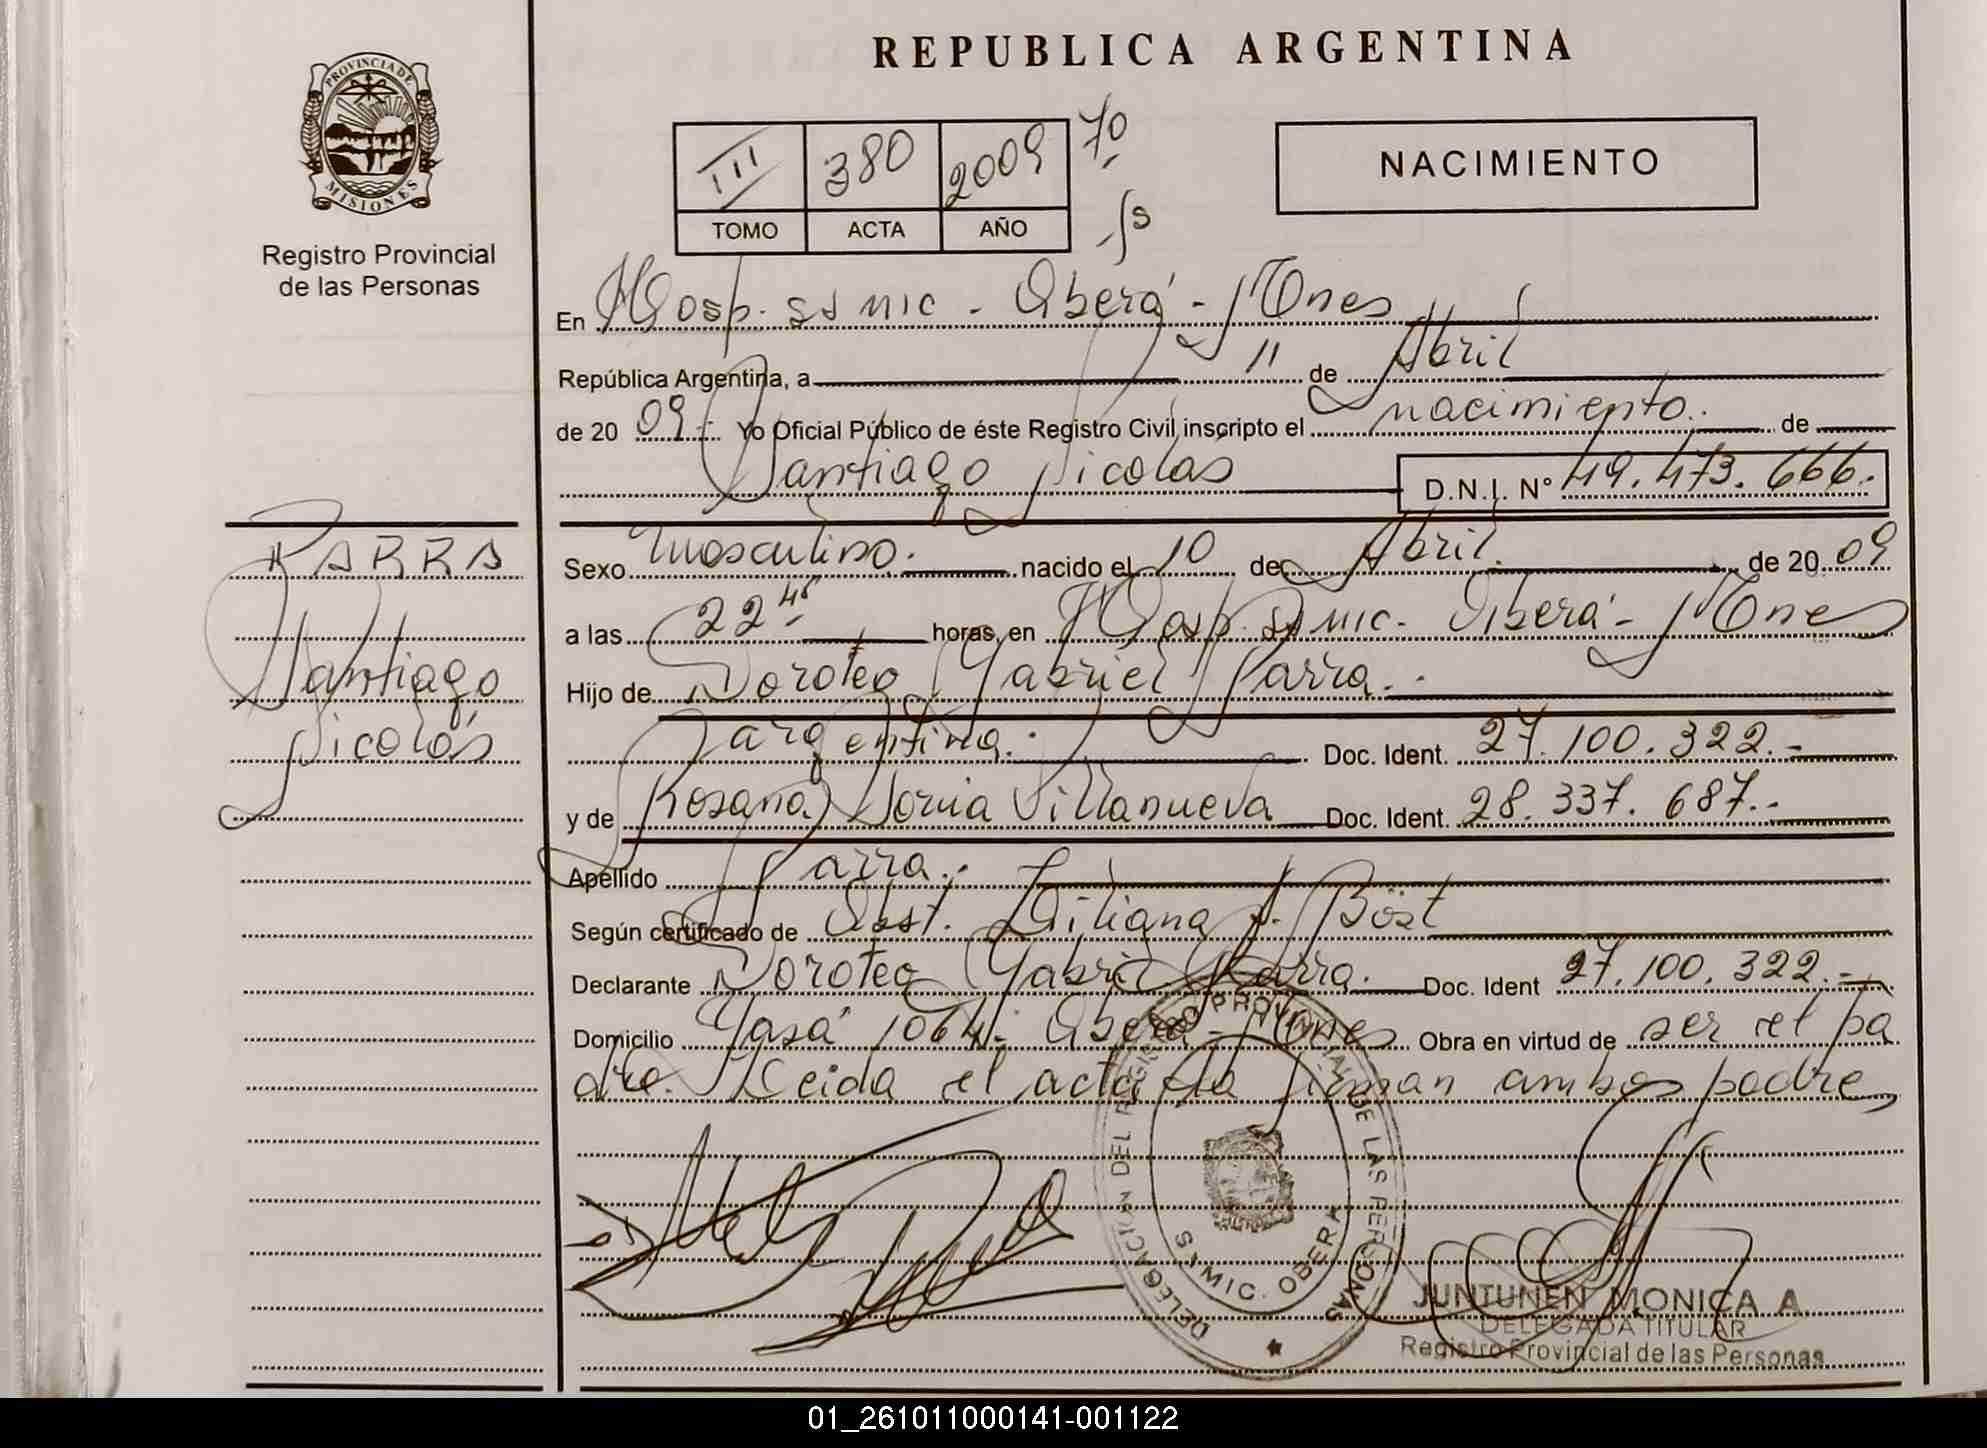 REPUBLICA ARGENTINA
PROVINCIA DE
MISIONES
Registro Provincial
de las Personas
III 380 2009 70
TOMO ACTA AÑO
NACIMIENTO
En Hosp. SAMIC - Oberá - Mnes
República Argentina, a 11 de Abril
de 20 09 Yo Oficial Público de éste Registro Civil inscripto el nacimiento de
Santiago Nicolás D.N.I. Nº 49.473.666.
PARRA
Santiago
Nicolás
Sexo masculino. nacido el 10 de Abril. de 20 09
a las 22 45 horas, en Hosp. SAMIC - Oberá - Mnes
Hijo de Doroteo Gabriel Parra.
argentina. Doc. Ident. 27.100.322.-
y de Rosana Sonia Villanueva Doc. Ident. 28.337.687.-
Apellido Parra.
Según certificado de Obst. Liliana Böst
Declarante Doroteo Gabriel Parra. Doc. Ident 27.100.322.-
Domicilio 1064 - Oberá - Mnes Obra en virtud de ser el pa
dre. Leida el acta la firman ambos padres
DELEGACION DEL REGISTRO PROVINCIAL DE LAS PERSONAS
SAMIC. OBERA
JUNTUNEN MONICA A.
DELEGADA TITULAR
Registro Provincial de las Personas
01_261011000141-001122